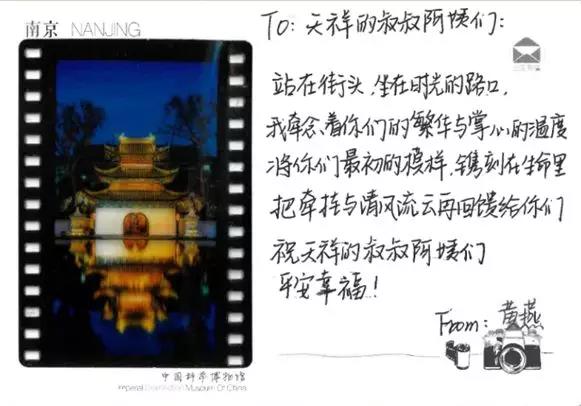 南京 NANJING
To: 天祥的叔叔阿姨们:
站在街头,坐在时光的路口,
我牵念着你们的繁华与掌心的温度
将你们最初的模样,镌刻在生命里
把牵挂与清风流云再回馈给你们
祝天祥的叔叔阿姨们
平安幸福!
From: 黄燕
中国科举博物馆
Imperial Examination Museum Of China